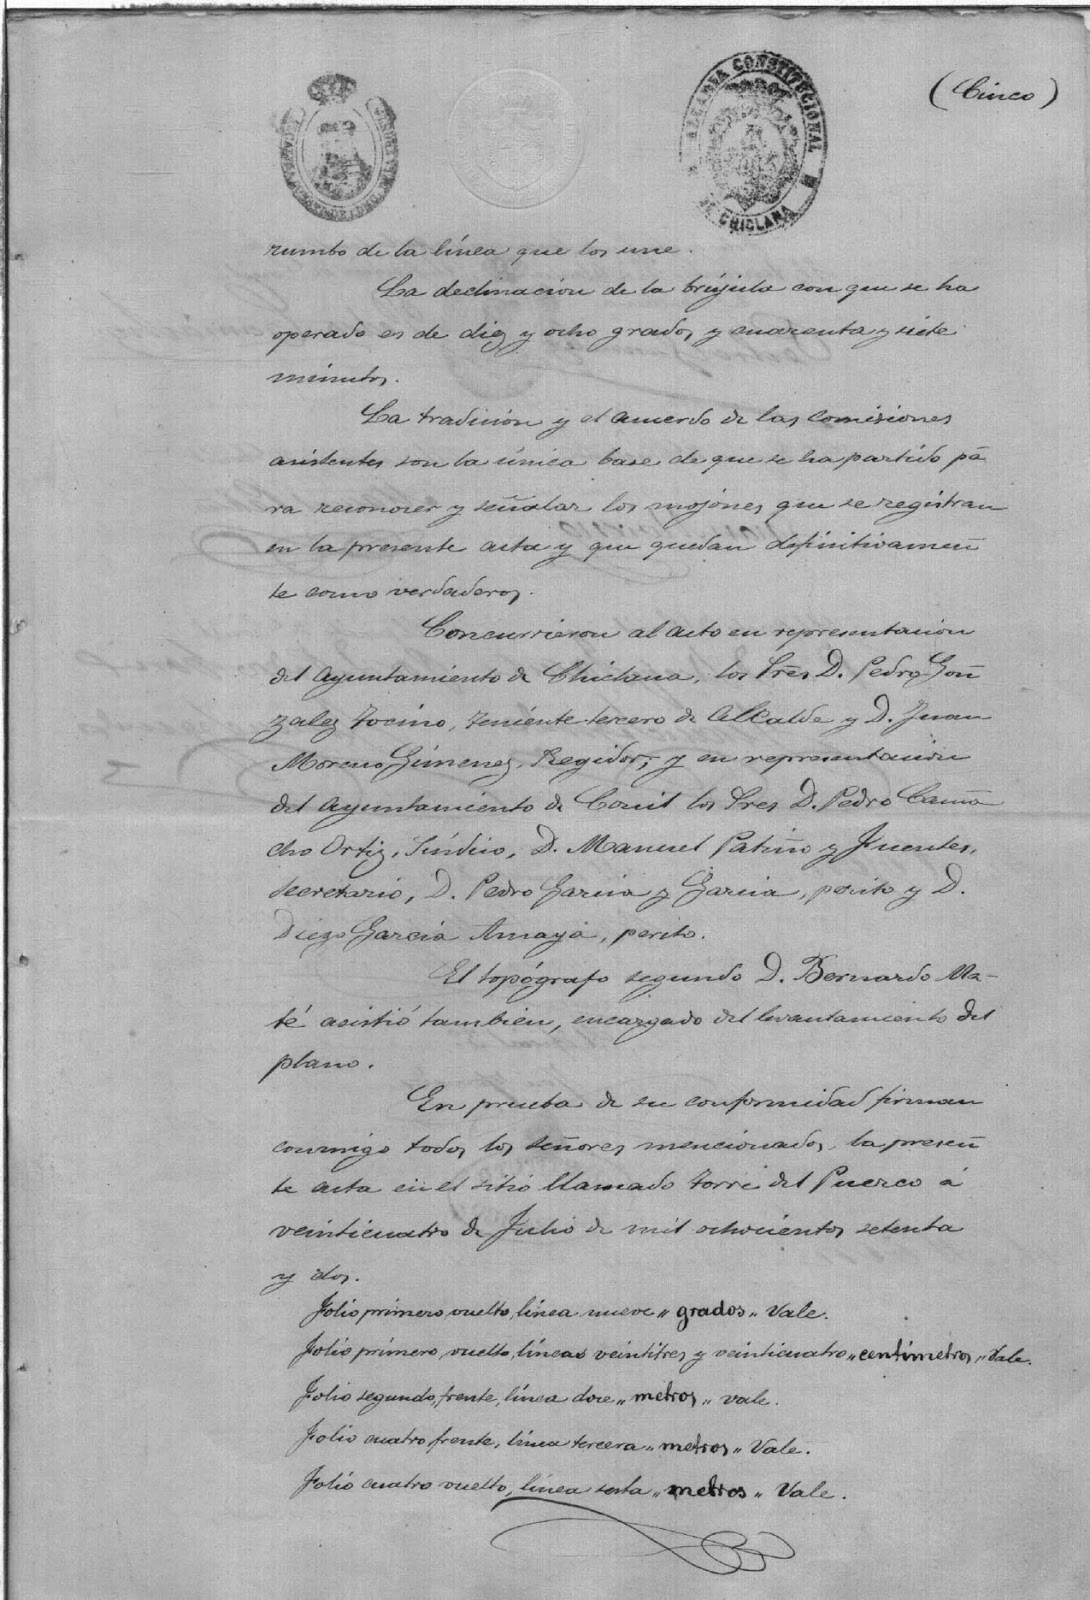 (Cinco)
ALCALDIA CONSTITUCIONAL
DE CHICLANA
rumbo de la línea que los une.
La declinacion de la brújula con que se ha
operado es de diez y ocho grados y cuarenta y siete
minutos.
La tradición y el acuerdo de las comisiones
asistentes son la única base de que se ha partido pa
ra reconocer y señalar los mojones que se registran
en la presente acta y que quedan definitivamen
te como verdaderos.
Concurrieron al acto en representacion
del Ayuntamiento de Chiclana, los Sres D. Pedro Gon
zalez Tocino, Teniente tercero de Alcalde y D. Juan
Moreno Gimenez, Regidor, y en representacion
del Ayuntamiento de Conil los Sres D. Pedro Cama
cho Ortiz, Síndico, D. Manuel Patiño y Fuentes,
Secretario, D. Pedro Garcia y Garcia, perito y D.
Diego García Amaya, perito.
El topógrafo segundo D. Bernardo Ma-
té asistió tambien, encargado del levantamiento del
plano.
En prueba de su conformidad firman
conmigo todos los señores mencionados, la presen
te acta en el sitio llamado torre del Puerco á
veinticuatro de Julio de mil ochocientos setenta
y dos.
Folio primero vuelto, línea nueve "grados" Vale.
Folio primero, vuelto, líneas veintitres y veinticuatro "centímetros" Vale.
Folio segundo, frente, línea doce "metros" vale.
Folio cuatro frente, línea tercera "metros" Vale.
Folio cuatro vuelto, línea sesta "metros" Vale.